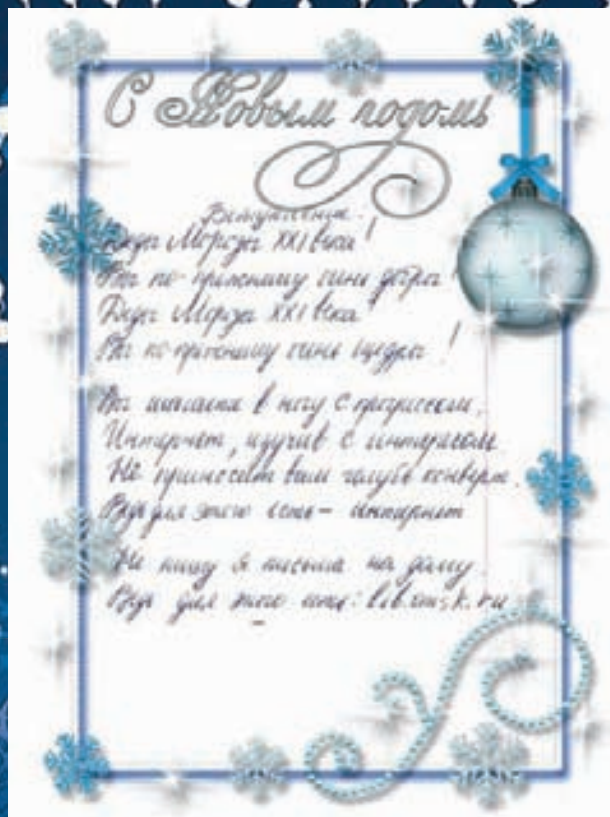 С Новым годомъ
Вступление.
Деды Морозы XXI века!
Вы по-прежнему очень добры!
Деды Морозы XXI века
Вы по-прежнему очень щедры!
Вы шагаете в ногу с прогрессом,
Интернет, изучив с интересом
Не приносит вам голубь конверт.
Ведь для этого есть - интернет
Не пишу я письма на дому
Ведь для этого есть: lib.omsk.ru